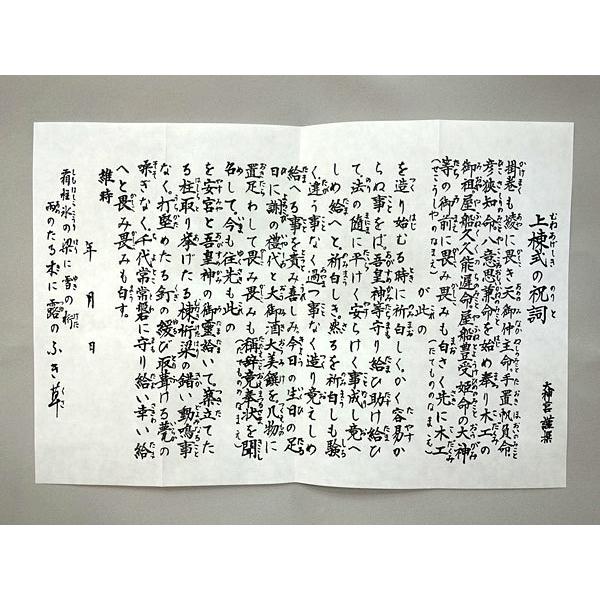 上棟式の祝詞
大神宮謹集
掛巻も綾に畏き天御仲主命手置帆負命
彦狭知命八意思兼命を始め奉り木工の
御祖屋船久久能遅命屋船豊受姫命の大神
等の御前に畏み畏みも白さく先に木工
が此の
を造り始むる時に祈白しゝかく容易か
らぬ事をば吾皇神等守り給ひ助け給ひ
て法の随に平けく安らけく事成し竟へ
しめ給へと祈白しき然るを祈白しも験
く違う事なく過つ事なく造り竟えしめ
給へる事を貴み喜しみ今日の生日の足
日に謝の礼代と大御酒大美饌を几物に
置足わして畏み畏みも称辞竟奉状を聞
召して今も往先も此の
を安宮と吾皇神の御霊給いて築立てた
る柱取り挙げたる棟桁梁の錯い動鳴事
なく打堅めたる釘の緩び取葺ける甍の
噪ぎなく千代常常磐に守り給い幸い給
へと畏み畏みも白す
維時
年 月 日
霜柱氷の梁に雪の桁
雨のたる木に露のふき草